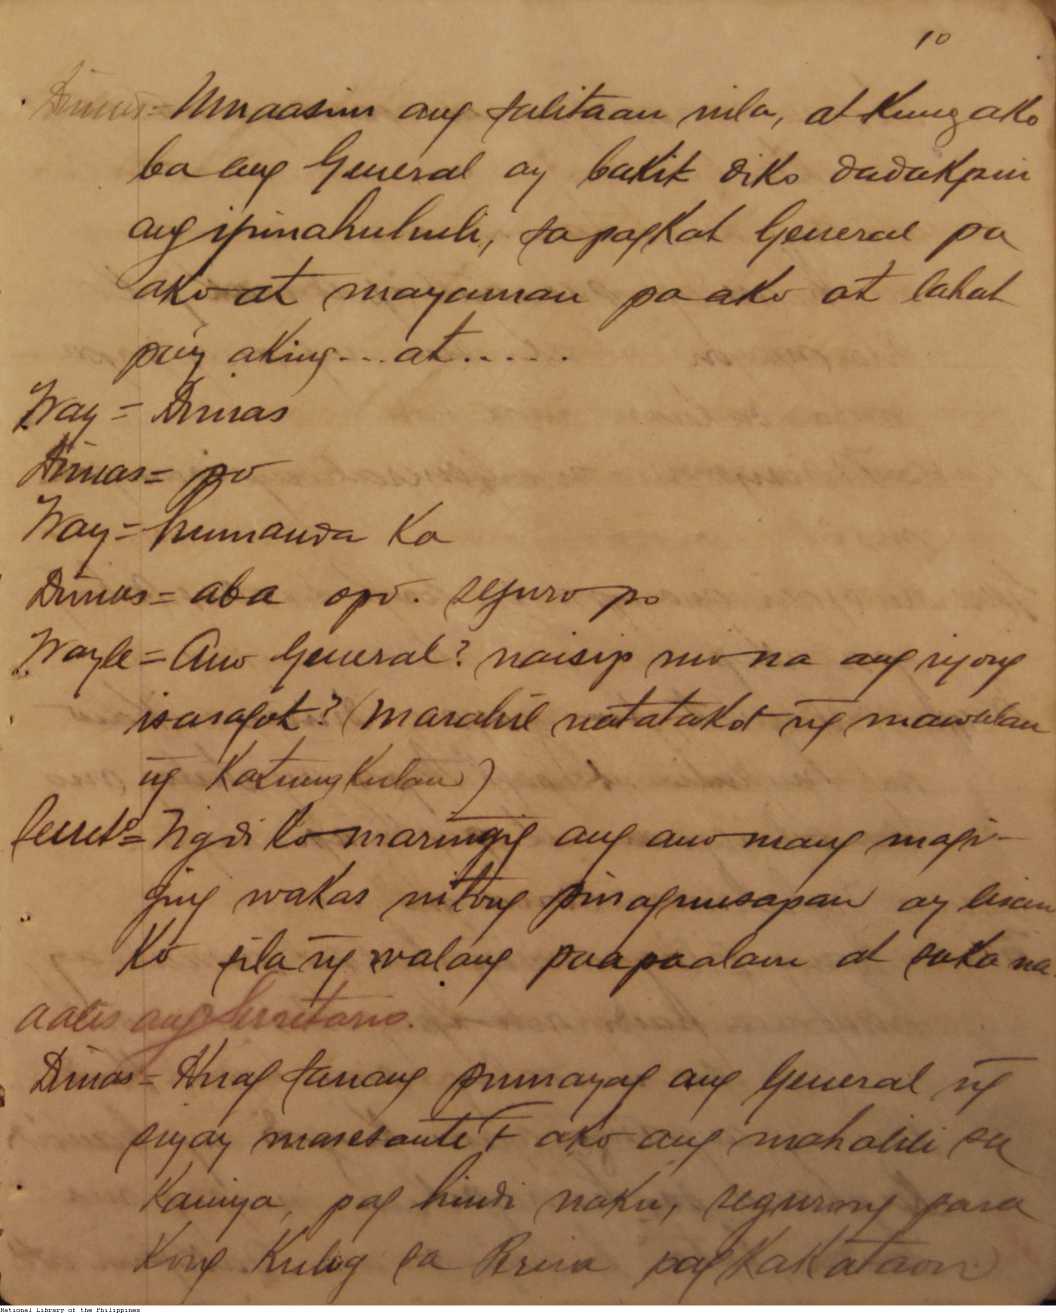 10
Dimas = Umaasim ang salitaan nila, at kung ako
ba ang General ay bakit diko dadakpin
ang ipinahuhuli, sapagkat General pa
ako at mayaman pa ako at lahat
pa'y aking... at......
Way = Dimas
Dimas = po
Way = humanda ka
Dimas = aba opo. seguro po
Wayle = Ano General? naisip mo na ang iyong
isasagot? (Marahil natatakot ng mawalan
ng Katungkulan)
Secret.º = Ng di ko maringig ang ano mang magi-
ging wakas nitong pinaguusapan ay lisan
ko sila ng walang paapaalam at saka na
aalis ang Secretario.
Dimas = Huag sanang pumayag ang General ng
siyay masesante't ako ang mahalili sa
kaniya, pag hindi naku, segurong para
Kong Kulog sa pagkakataon
National Library of the Philippines